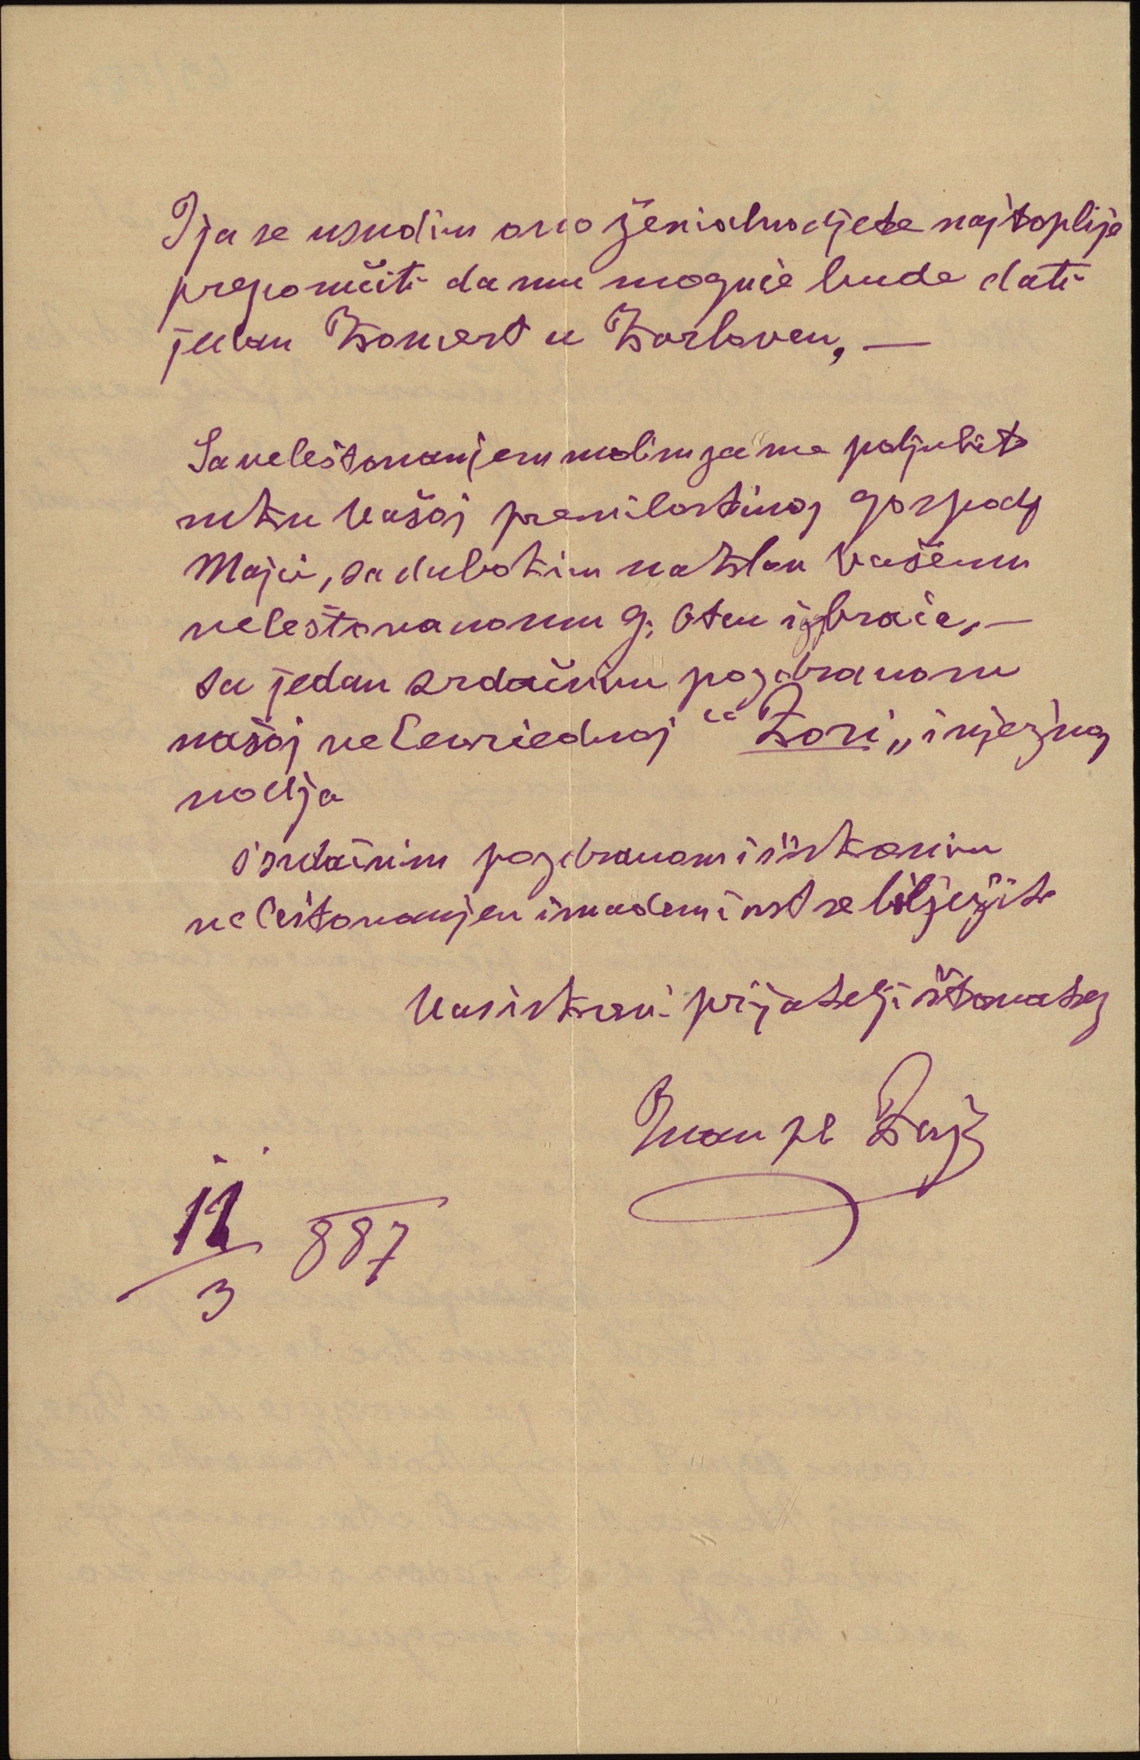 I ja se usudim ovo ženialno djete najtoplije
preporučiti da mu moguće bude dati
jedan Koncert u Karlovcu, —
Sa veleštovanjem molim za me poljubit
ruku Vašoj premilostivoj gospodj
Majci, sa dubokim naklon Vašemu
veleštovanomu g. Otcu i braće, —
sa jedan srdačnim pozdravom
našoj velevriednoj "Zori„ i njezinog
vodja
S srdačnim pozdravom i iskrenim
veleštovanjem imadem čast se bilježiti
Vas iskreni prijatelj i štovatelj
Ivan pl Zajz
11/3 887